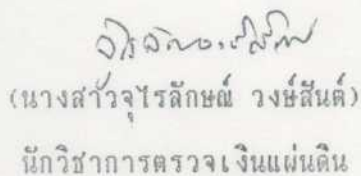 (นางสาวจุไรลักษณ์ วงษ์สันต์)
นักวิชาการตรวจเงินแผ่นดิน